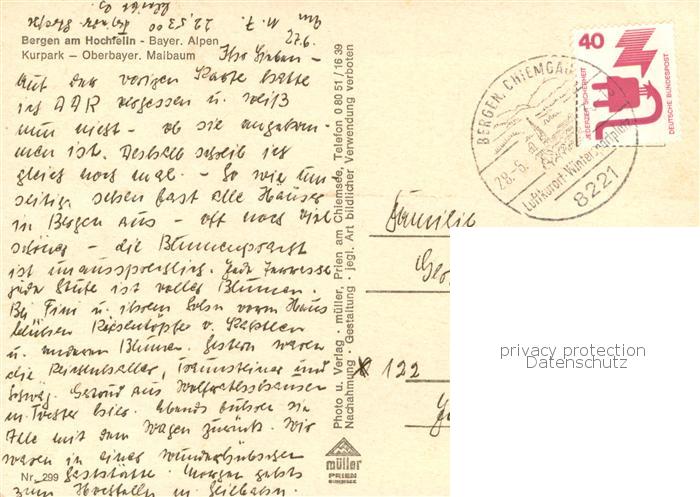 Am 11. 7. 22,53 00
27.6.
Bergen am Hochfelln - Bayer. Alpen
Kurpark – Oberbayer. Maibaum
Ihr Lieben –
Auf der vorigen Karte hatte
ich AAR vergessen u. weiß
nun nicht – ob sie angekom-
men ist. Deshalb schreib ich
gleich noch mal. – So wie um-
seitig sehen fast alle Häuser
in Bergen aus – oft noch viel
schöner – die Blumenpracht
ist unaussprechlich. Jede Terrasse
jede Stufe ist voller Blumen.
Bei Fini u. ihrem Sohn vorm Haus
blühen Riesentöpfe v.
u. anderen Blumen. Gestern waren
die Reichenhaller, Traunsteiner und
Geraud aus Wolfratshausen
m. Tochter hier. Abends fuhren sie
Alle mit dem Wagen zurück. Wir
waren in einer wunderhübschen
Gaststätte. Morgen gehts
zum Hochfelln m. Seilbahn.
Nr. 299
Photo u. Verlag · müller, Prien am Chiemsee, Telefon 0 80 51 / 16 39
Nachahmung · Gestaltung · jegl. Art bildlicher Verwendung verboten
müller
PRIEN
CHIEMSEE
40
JEDERZEIT SICHERHEIT
DEUTSCHE BUNDESPOST
BERGEN, CHIEMGAU
28.-6.
Luftkurort-Wintersportplatz
8221
Familie
Geo
122
privacy protection
Datenschutz